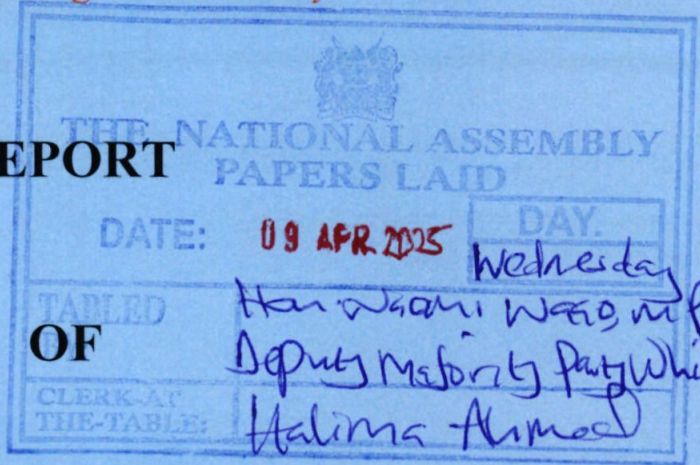 THE NATIONAL ASSEMBLY
EPORT
PAPERS LAID
DATE: 09 APR 2025 DAY.
Wednesday
TABLED Hon. Naomi Waqo, MP
OF Deputy Majority Party Whi
CLERK-AT
THE-TABLE: Halima Ahmed